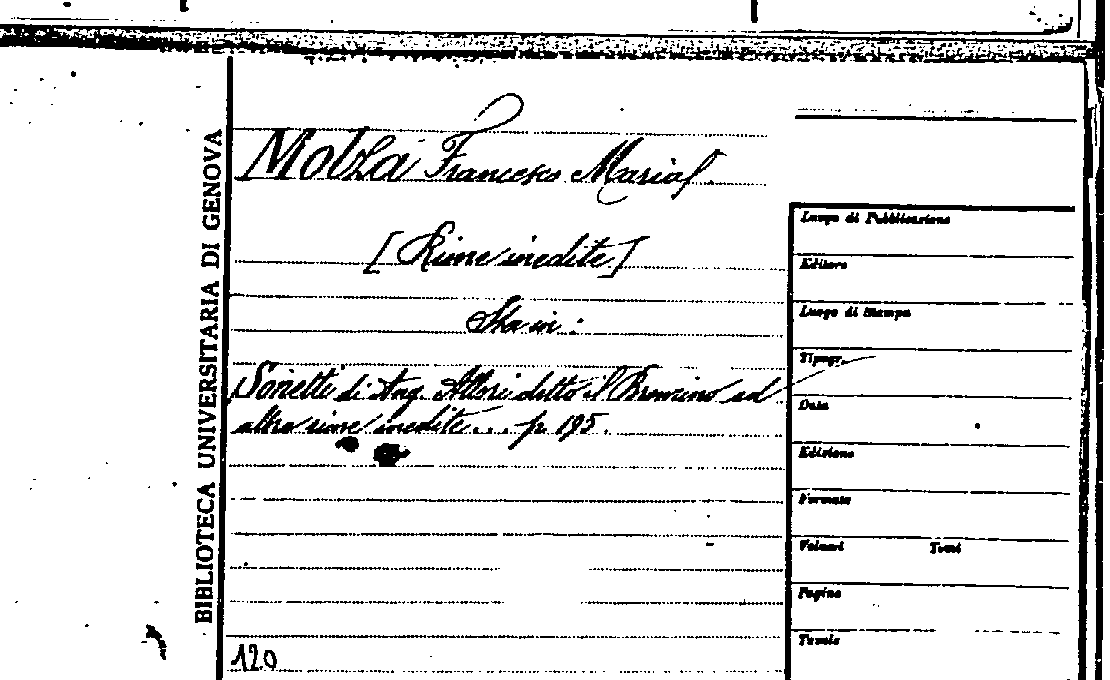 BIBLIOTECA UNIVERSITARIA DI GENOVA
Molza Francesco Maria
[Rime inedite]
Sta in:
Sonetti di Ang. Allori detto il Bronzino ed
altre rime inedite... p. 195.
120
Luogo di Pubblicazione
Editore
Luogo di Stampa
Tipogr.
Data
Edizione
Formato
Volumi Tomi
Pagine
Tavole